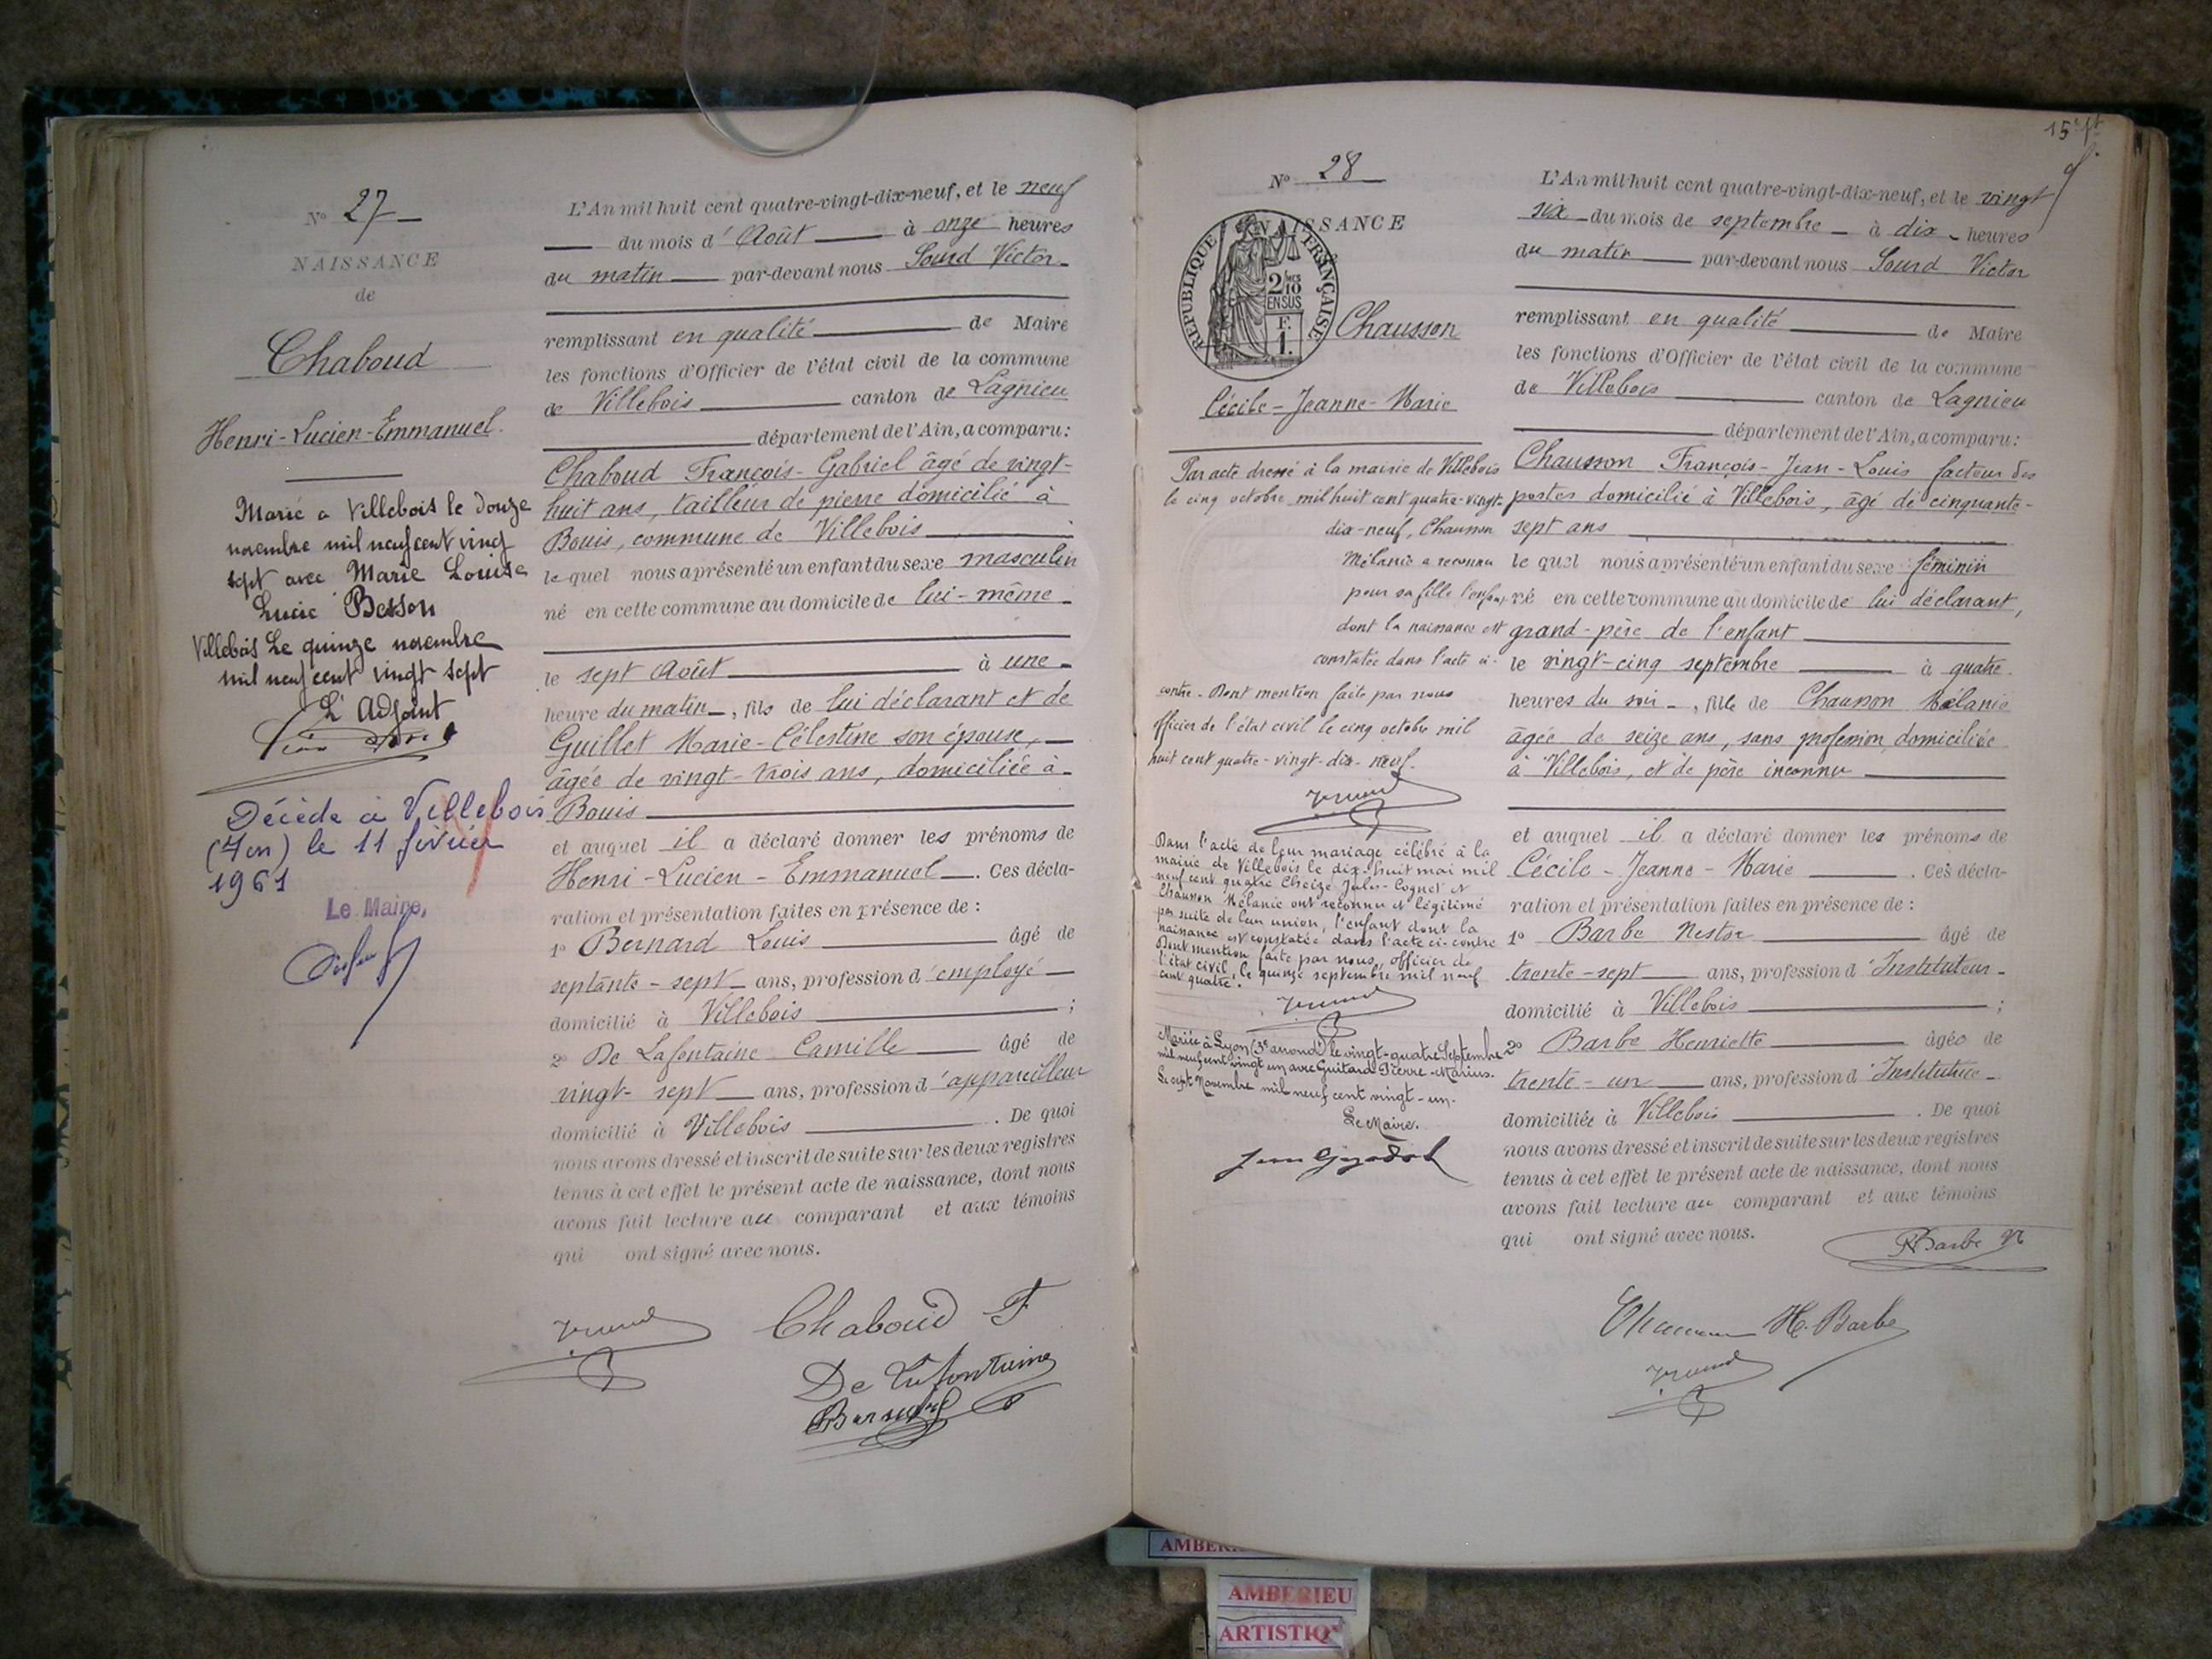 N° 27
NAISSANCE
de
Chaboud
Henri-Lucien-Emmanuel
Marié a Villebois le douze
novembre mil neuf cent vingt
sept avec Marie Louise
Lucie Besson
Villebois Le quinze novembre
mil neuf cent vingt sept
L'Adjoint
Décédé à Villebois
(Ain) le 11 février
1961
Le Maire,
L'An mil huit cent quatre-vingt-dix-neuf, et le neuf
du mois d'Août à onze heures
du matin par-devant nous Sourd Victor
remplissant en qualité de Maire
les fonctions d'Officier de l'état civil de la commune
de Villebois canton de Lagnieu
département de l'Ain, a comparu:
Chaboud François-Gabriel âgé de vingt-
huit ans, tailleur de pierre domicilié à
Bouis, commune de Villebois
lequel nous a présenté un enfant du sexe masculin
né en cette commune au domicile de lui-même
le sept Août à une
heure du matin, fils de lui déclarant et de
Guillet Marie-Célestine son épouse,
âgée de vingt-trois ans, domiciliée à
Bouis
et auquel il a déclaré donner les prénoms de
Henri-Lucien-Emmanuel. Ces décla-
ration et présentation faites en présence de :
1° Bernard Louis âgé de
septante-sept ans, profession d'employé
domicilié à Villebois ;
2° De Lafontaine Camille âgé de
vingt-sept ans, profession d'appareilleur
domicilié à Villebois . De quoi
nous avons dressé et inscrit de suite sur les deux registres
tenus à cet effet le présent acte de naissance, dont nous
avons fait lecture au comparant et aux témoins
qui ont signé avec nous.
Chaboud F
De Lafontaine
Bernard
15e ft
N° 28
NAISSANCE
REPUBLIQUE FRANÇAISE
2/10
EN SUS
F.
1.
Chausson
Cécile-Jeanne-Marie
Par acte dressé à la mairie de Villebois
le cinq octobre mil huit cent quatre-vingt-
dix-neuf, Chausson
Mélanie a reconnu
pour sa fille l'enfant
dont la naissance est
constatée dans l'acte ci-
contre. Dont mention faite par nous
officier de l'état civil le cinq octobre mil
huit cent quatre-vingt-dix-neuf.
Dans l'acte de leur mariage célébré à la
mairie de Villebois le dix-huit mai mil
neuf cent quatre Cheize Jules-Coquet et
Chausson Mélanie ont reconnu et légitimé
par suite de leur union, l'enfant dont la
naissance est constatée dans l'acte ci-contre
Dont mention faite par nous, officier de
l'état civil, le quinze septembre mil neuf
cent quatre.
Mariée à Lyon (3e arrondt) le vingt-quatre Septembre
mil neuf cent vingt un avec Guitard Pierre-Marius.
Le sept Novembre mil neuf cent vingt-un.
Le Maire.
L'An mil huit cent quatre-vingt-dix-neuf, et le vingt
six du mois de septembre à dix heures
du matin par-devant nous Sourd Victor
remplissant en qualité de Maire
les fonctions d'Officier de l'état civil de la commune
de Villebois canton de Lagnieu
département de l'Ain, a comparu:
Chausson François-Jean-Louis facteur des
postes domicilié à Villebois, âgé de cinquante-
sept ans
lequel nous a présenté un enfant du sexe féminin
né en cette commune au domicile de lui déclarant,
grand-père de l'enfant
le vingt-cinq septembre à quatre
heures du soir, fille de Chausson Mélanie
âgée de seize ans, sans profession, domiciliée
à Villebois, et de père inconnu
et auquel il a déclaré donner les prénoms de
Cécile-Jeanne-Marie . Ces décla-
ration et présentation faites en présence de :
1° Barbe Nestor âgé de
trente-sept ans, profession d'Instituteur
domicilié à Villebois ;
2° Barbe Henriette âgée de
trente-un ans, profession d'Institutrice
domiciliée à Villebois . De quoi
nous avons dressé et inscrit de suite sur les deux registres
tenus à cet effet le présent acte de naissance, dont nous
avons fait lecture au comparant et aux témoins
qui ont signé avec nous.
Barbe N
Chausson H. Barbe
AMBERIEU
ARTISTIQ